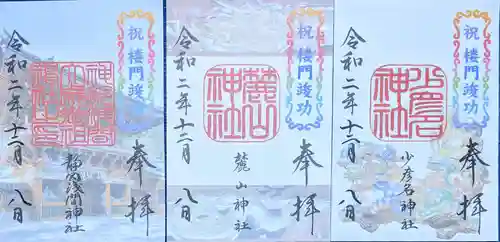 奉拝
祝 楼門竣功
静岡浅間神社
令和二年十二月
八日
奉拝
祝 楼門竣功
麓山神社
麓山神社
令和二年十二月
八日
奉拝
祝 楼門竣功
少彦名神社
少彦名神社
令和二年十二月
八日